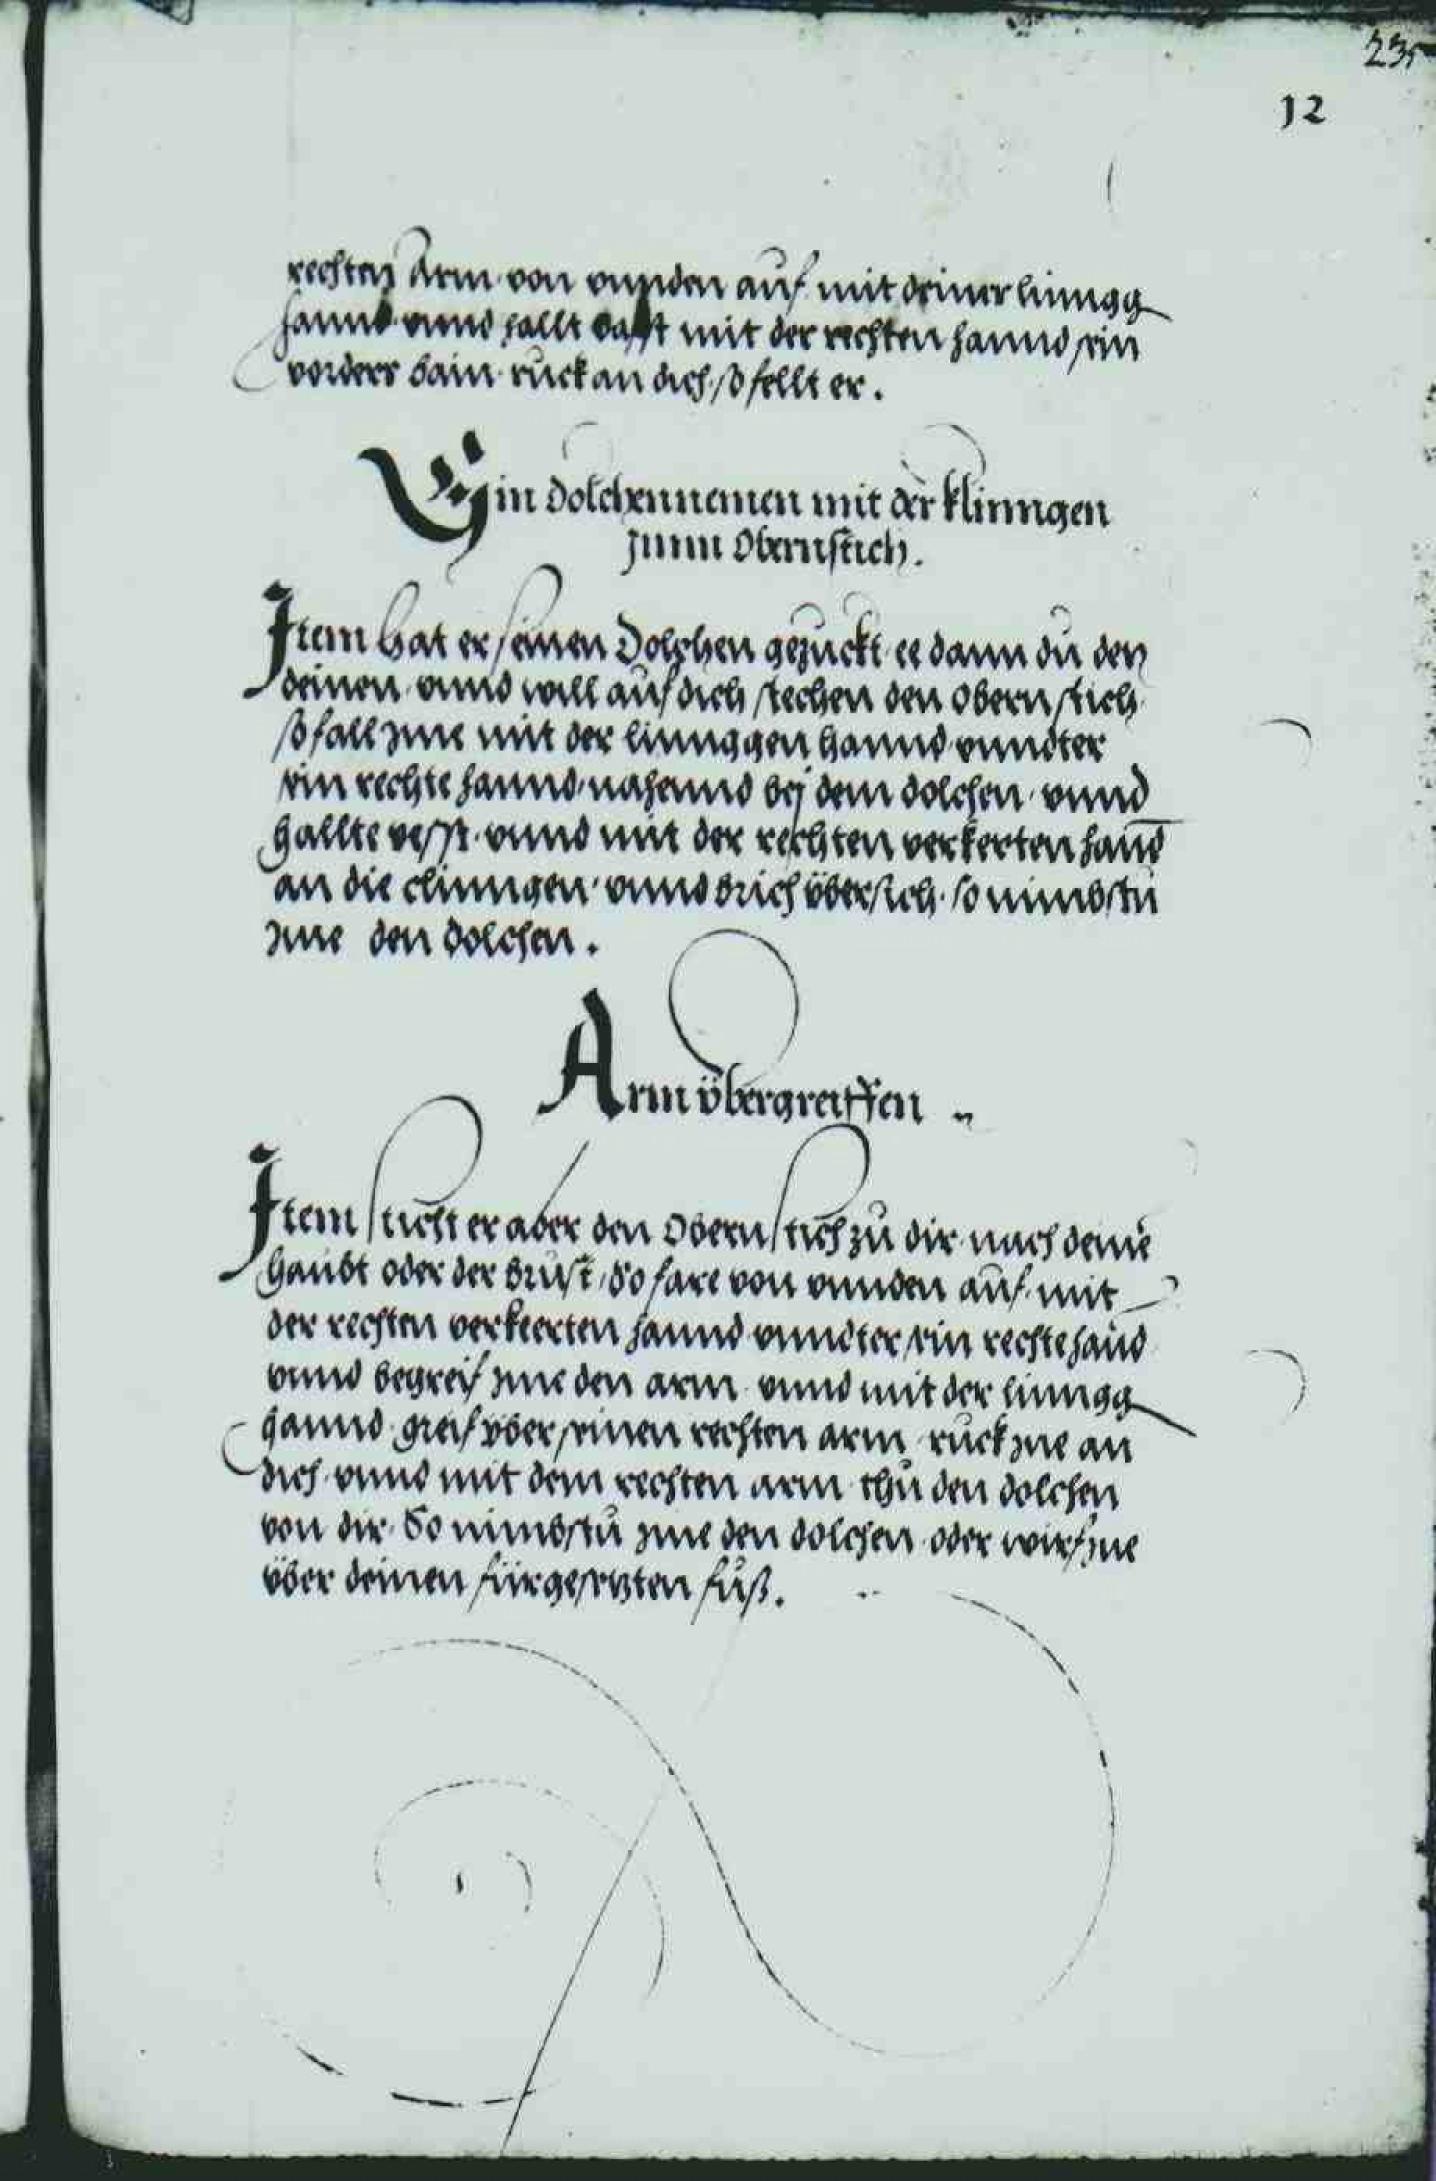 235
12
rechten Arm von vnnden auf mit deiner linngg
hannd vnnd hallt vasst mit der rechten hannd sein
vorders bain ruck an dich so fellt er.
Ein dolchennemen mit der klinngen
zum Obernstich.
Item hat er seinen Dolchen gezuckt ee dann du den
deinen vnnd will auf dich stechen den obern stich
so fall jme mit der linnggen hannd vnndter
sein rechte hannd nahennd bej dem dolchen vnnd
hallte vesst vnnd mit der rechten verkerten hannd
an die clinngen vnnd brich übersich so nimbstu
jme den dolchen.
Arm übergreiffen
Item sticht er aber den Obern stich zu dir nach deinē
haubt oder der brust so fare von vnnden auf mit
der rechten verkeerten hannd vnndter sein rechte hānd
vnnd begreif jme den arm vnnd mit der linngg
hannd greif über seinen rechten arm ruck jne an
dich vnnd mit dem rechten arm thu den dolchen
von dir So nimbstu jme den dolchen oder wirf jne
über deinen fürgesetzten fuß.